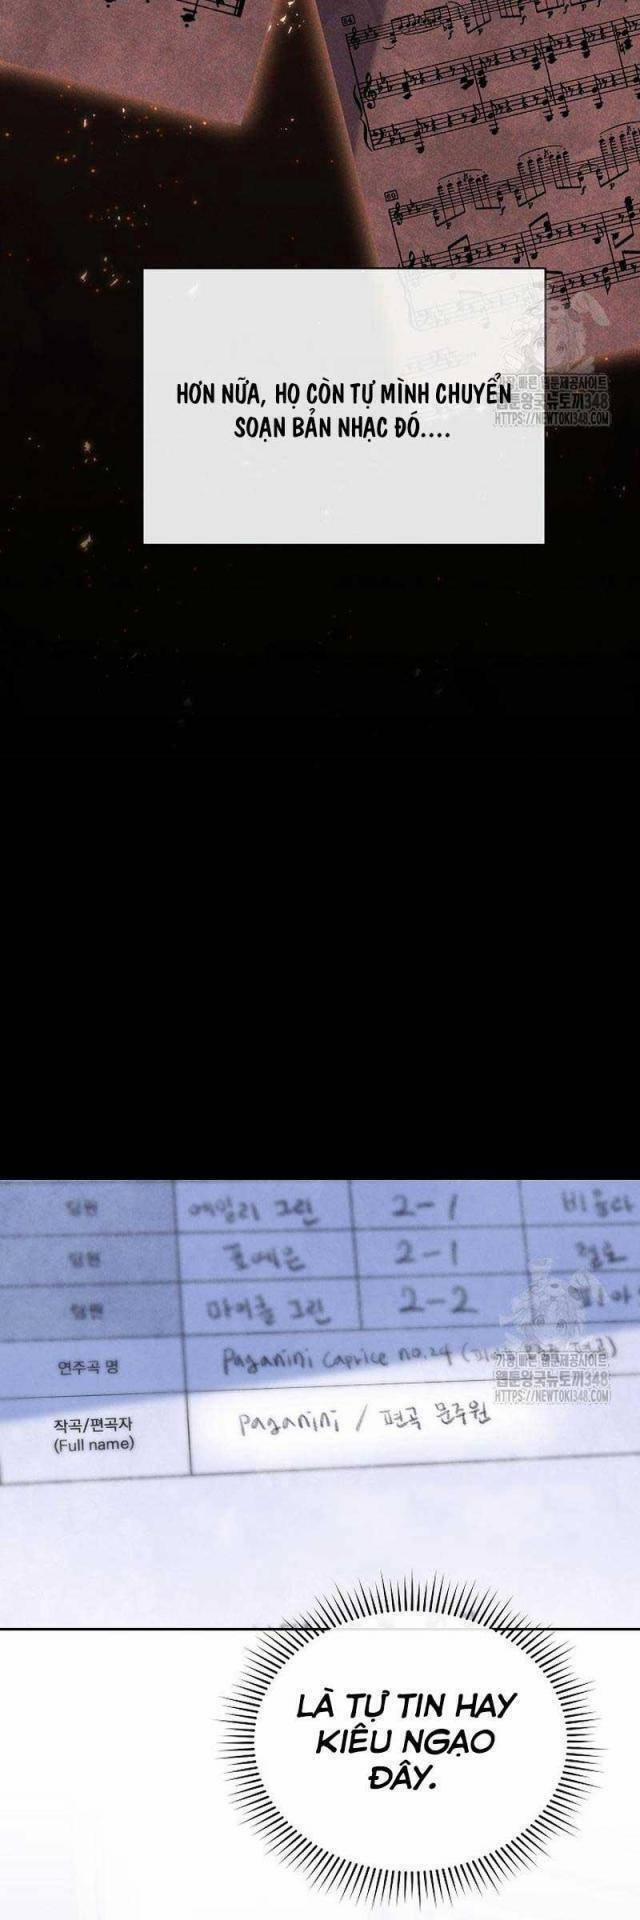 HƠN NỮA, HỌ CÒN TỰ MÌNH CHUYỂN
SOẠN BẢN NHẠC ĐÓ....
가장 빠른 웹툰제공사이트
웹툰왕국뉴토끼348
HTTPS://NEWTOKI348.COM
팀원 에밀리 그린 2-1
팀원 2-1 첼로
팀원 마이클 그린 2-2
연주곡 명 Paganini Caprice no.24
작곡/편곡자 Paganini / 편곡 문주원
(Full name)
가장 빠른 웹툰제공사이트
웹툰왕국뉴토끼348
HTTPS://NEWTOKI348.COM
LÀ TỰ TIN HAY
KIÊU NGẠO
ĐÂY.